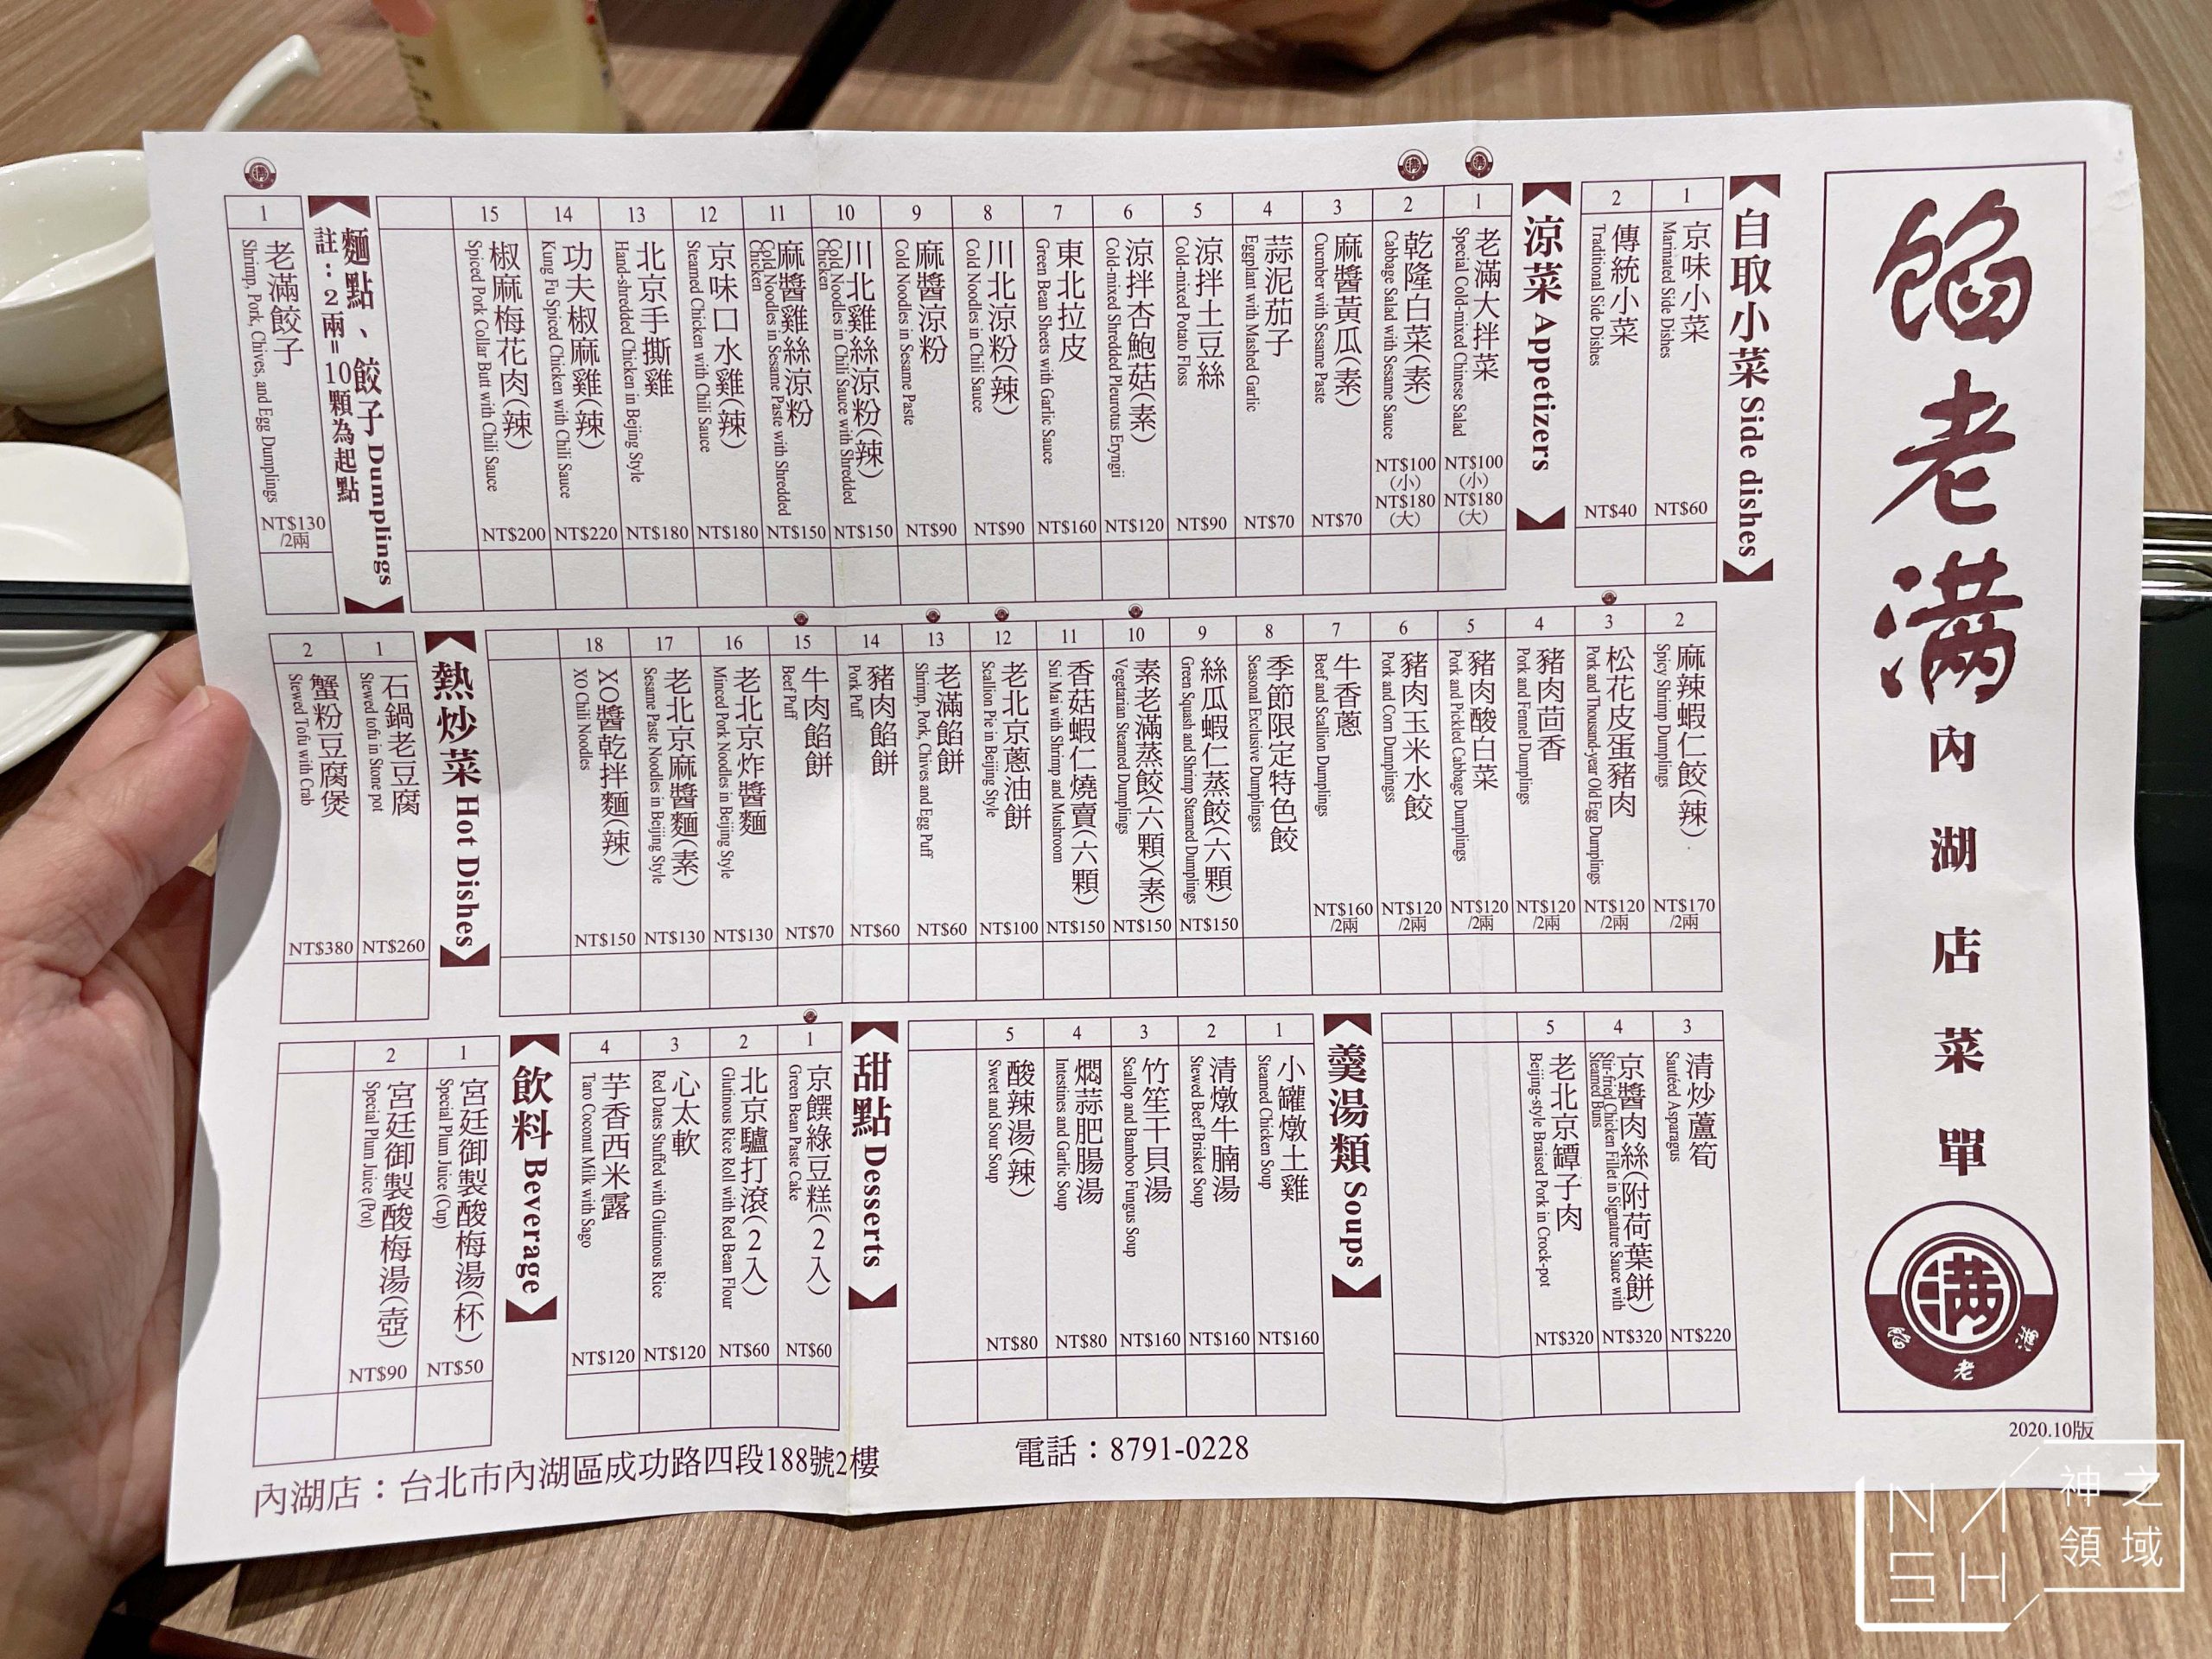 餡老滿內湖店菜單
滿
餡老滿
2020.10版
自取小菜 Side dishes
1
京味小菜
Marinated Side Dishes
NT$60
2
傳統小菜
Traditional Side Dishes
NT$40
涼菜 Appetizers
1
老滿大拌菜
Special Cold-mixed Chinese Salad
NT$100
(小)
NT$180
(大)
2
乾隆白菜(素)
Cabbage Salad with Sesame Sauce
NT$100
(小)
NT$180
(大)
3
麻醬黃瓜(素)
Cucmber with Sesame Paste
NT$70
4
蒜泥茄子
Eggplant with Mashed Garlic
NT$70
5
涼拌土豆絲
Cold-mixed Potato Floss
NT$90
6
涼拌杏鮑菇(素)
Cold-mixed Shredded Pleurotus Eryngii
NT$120
7
東北拉皮
Green Bean Sheets with Garlic Sauce
NT$160
8
川北涼粉(辣)
Cold Noodles in Chili Sauce
NT$90
9
麻醬涼粉
Cold Noodles in Sesame Paste
NT$90
10
川北雞絲涼粉(辣)
Cold Noodles in Chili Sauce with Shredded
Chicken
NT$150
11
麻醬雞絲涼粉
Cold Noodles in Sesame Paste with Shredded
Chicken
NT$150
12
京味口水雞(辣)
Steamed Chicken with Chili Sauce
NT$180
13
北京手撕雞
Hand-shredded Chicken in Beijing Style
NT$180
14
功夫椒麻雞(辣)
Kung Fu Spiced Chicken with Chili Sauce
NT$220
15
椒麻梅花肉(辣)
Spiced Pork Collar Butt with Chili Sauce
NT$200
麵點、餃子 Dumplings
註：2兩=10顆為起點
1
老滿餃子
Shrimp, Pork, Chives, and Egg Dumplings
NT$130
/2兩
2
麻辣蝦仁餃(辣)
Spicy Shrimp Dumplings
NT$170
/2兩
3
松花皮蛋豬肉
Pork and Thousand-year Old Egg Dumplings
NT$120
/2兩
4
豬肉茴香
Pork and Fennel Dumplings
NT$120
/2兩
5
豬肉酸白菜
Pork and Pickled Cabbage Dumplings
NT$120
/2兩
6
豬肉玉米水餃
Pork and Corn Dumplingss
NT$120
/2兩
7
牛香蔥
Beef and Scallion Dumplings
NT$160
/2兩
8
季節限定特色餃
Seasonal Exclusive Dumplingss
9
絲瓜蝦仁蒸餃(六顆)
Green Squash and Shrimp Steamed Dumplings
NT$150
10
素老滿蒸餃(六顆)(素)
Vegetarian Steamed Dumplings
NT$150
11
香菇蝦仁燒賣(六顆)
Sui Mai with Shrimp and Mushroom
NT$150
12
老北京蔥油餅
Scallion Pie in Beijing Style
NT$100
13
老滿餡餅
Shrimp, Pork, Chives and Egg Puff
NT$60
14
豬肉餡餅
Pork Puff
NT$60
15
牛肉餡餅
Beef Puff
NT$70
16
老北京炸醬麵
Minced Pork Noodles in Beijing Style
NT$130
17
老北京麻醬麵(素)
Sesame Paste Noodles in Beijing Style
NT$130
18
XO醬乾拌麵(辣)
XO Chili Noodles
NT$150
熱炒菜 Hot Dishes
1
石鍋老豆腐
Stewed tofu in Stone pot
NT$260
2
蟹粉豆腐煲
Stewed Tofu with Crab
NT$380
3
清炒蘆筍
Sautéed Asparagus
NT$220
4
京醬肉絲(附荷葉餅)
Stir-fried Chicken Fillet in Signature Sauce with
Steamed Buns
NT$320
5
老北京罈子肉
Beijing-style Braised Pork in Crock-pot
NT$320
羹湯類 Soups
1
小罐燉土雞
Steamed Chicken Soup
NT$160
2
清燉牛腩湯
Stewed Beef Brisket Soup
NT$160
3
竹笙干貝湯
Scallop and Bamboo Fungus Soup
NT$160
4
燜蒜肥腸湯
Intestines and Garlic Soup
NT$80
5
酸辣湯(辣)
Sweet and Sour Soup
NT$80
甜點 Desserts
1
京饌綠豆糕(2入)
Green Bean Paste Cake
NT$60
2
北京驢打滾(2入)
Glutinous Rice Roll with Red Bean Flour
NT$60
3
心太軟
Red Dates Stuffed with Glutinous Rice
NT$120
4
芋香西米露
Taro Coconut Milk with Sago
NT$120
飲料 Beverage
1
宮廷御製酸梅湯(杯)
Special Plum Juice (Cup)
NT$50
2
宮廷御製酸梅湯(壺)
Special Plum Juice (Pot)
NT$90
內湖店：台北市內湖區成功路四段188號2樓
電話：8791-0228
NASH
神之領域